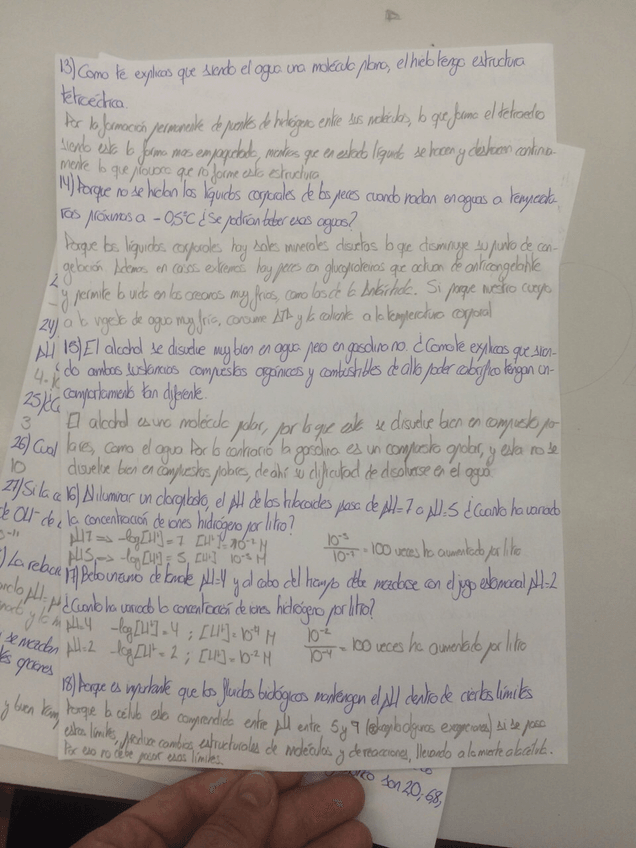 13) Como te explicas que siendo el agua una molécula plana, el hielo tenga estructura
tetraédrica.
Por la formación permanente de puentes de hidrógeno entre sus moléculas, lo que forma el tetraedro
siendo esta la forma mas empaquetada, mientras que en estado líquido se hacen y deshacen continua-
mente lo que provoca que no forme esta estructura
14) Porque no se hielan los líquidos corporales de los peces cuando nadan en aguas a temperatu-
ras próximas a -0,5°C ¿Se podrían beber esas aguas?
Porque los líquidos corporales hay sales minerales disueltas lo que disminuye su punto de con-
gelación. Ademas en casos extremos hay peces con glucoproteinas que actuan de anticongelante
y permite la vida en los oceanos muy fríos, como los de la Antártida. Si porque nuestro cuerpo
a la ingesta de agua muy fría, consume ATP y la calienta a la temperatura corporal
15) El alcohol se disuelve muy bien en agua pero en gasolina no. ¿Como te explicas que sien-
do ambas sustancias compuestos orgánicos y combustibles de alto poder calorífico tengan un
comportamiento tan diferente.
El alcohol es una molécula polar, por lo que este se disuelve bien en compuesto po-
lares, como el agua Por lo contrario la gasolina es un compuesto apolar, y esta no se
disuelve bien en compuestos polares, de ahí su dificultad de disolverse en el agua
16) Al iluminar un cloroplasto, el pH de los tilacoides pasa de pH=7 a pH=5 ¿Cuanto ha variado
la concentración de iones hidrógeno por litro?
pH7 => -log[H+] = 7 [H+] = 10-7 M
pH5 => -log[H+] = 5 [H+] 10-5 M
10-5/10-7 = 100 veces ha aumentado por litro
17) Bebo un zumo de tomate pH=4 y al cabo del tiempo debe mezclarse con el jugo estomacal pH=2
¿Cuanto ha variado la concentración de iones hidrógeno por litro?
pH=4 -log[H+] = 4 ; [H+] = 10-4 M
pH=2 -log[H+ = 2 ; [H+] = 10-2 M
10-2/10-4 = 100 veces ha aumentado por litro
18) Porque es importante que los fluidos biológicos mantengan el pH dentro de ciertos límites
Porque la célula esta comprendida entre pH entre 5 y 9 algunas excepciones) si se pasa
estos límites, produce cambios estructurales de moléculas y de reacciones, llevando a la muerte a la célula.
Por eso no debe pasar esos límites.
24)
pH
25)
3
26) Cual
10
27) Si la
de OH- de
La relac
se mezclan
y buen
son 20, 68,